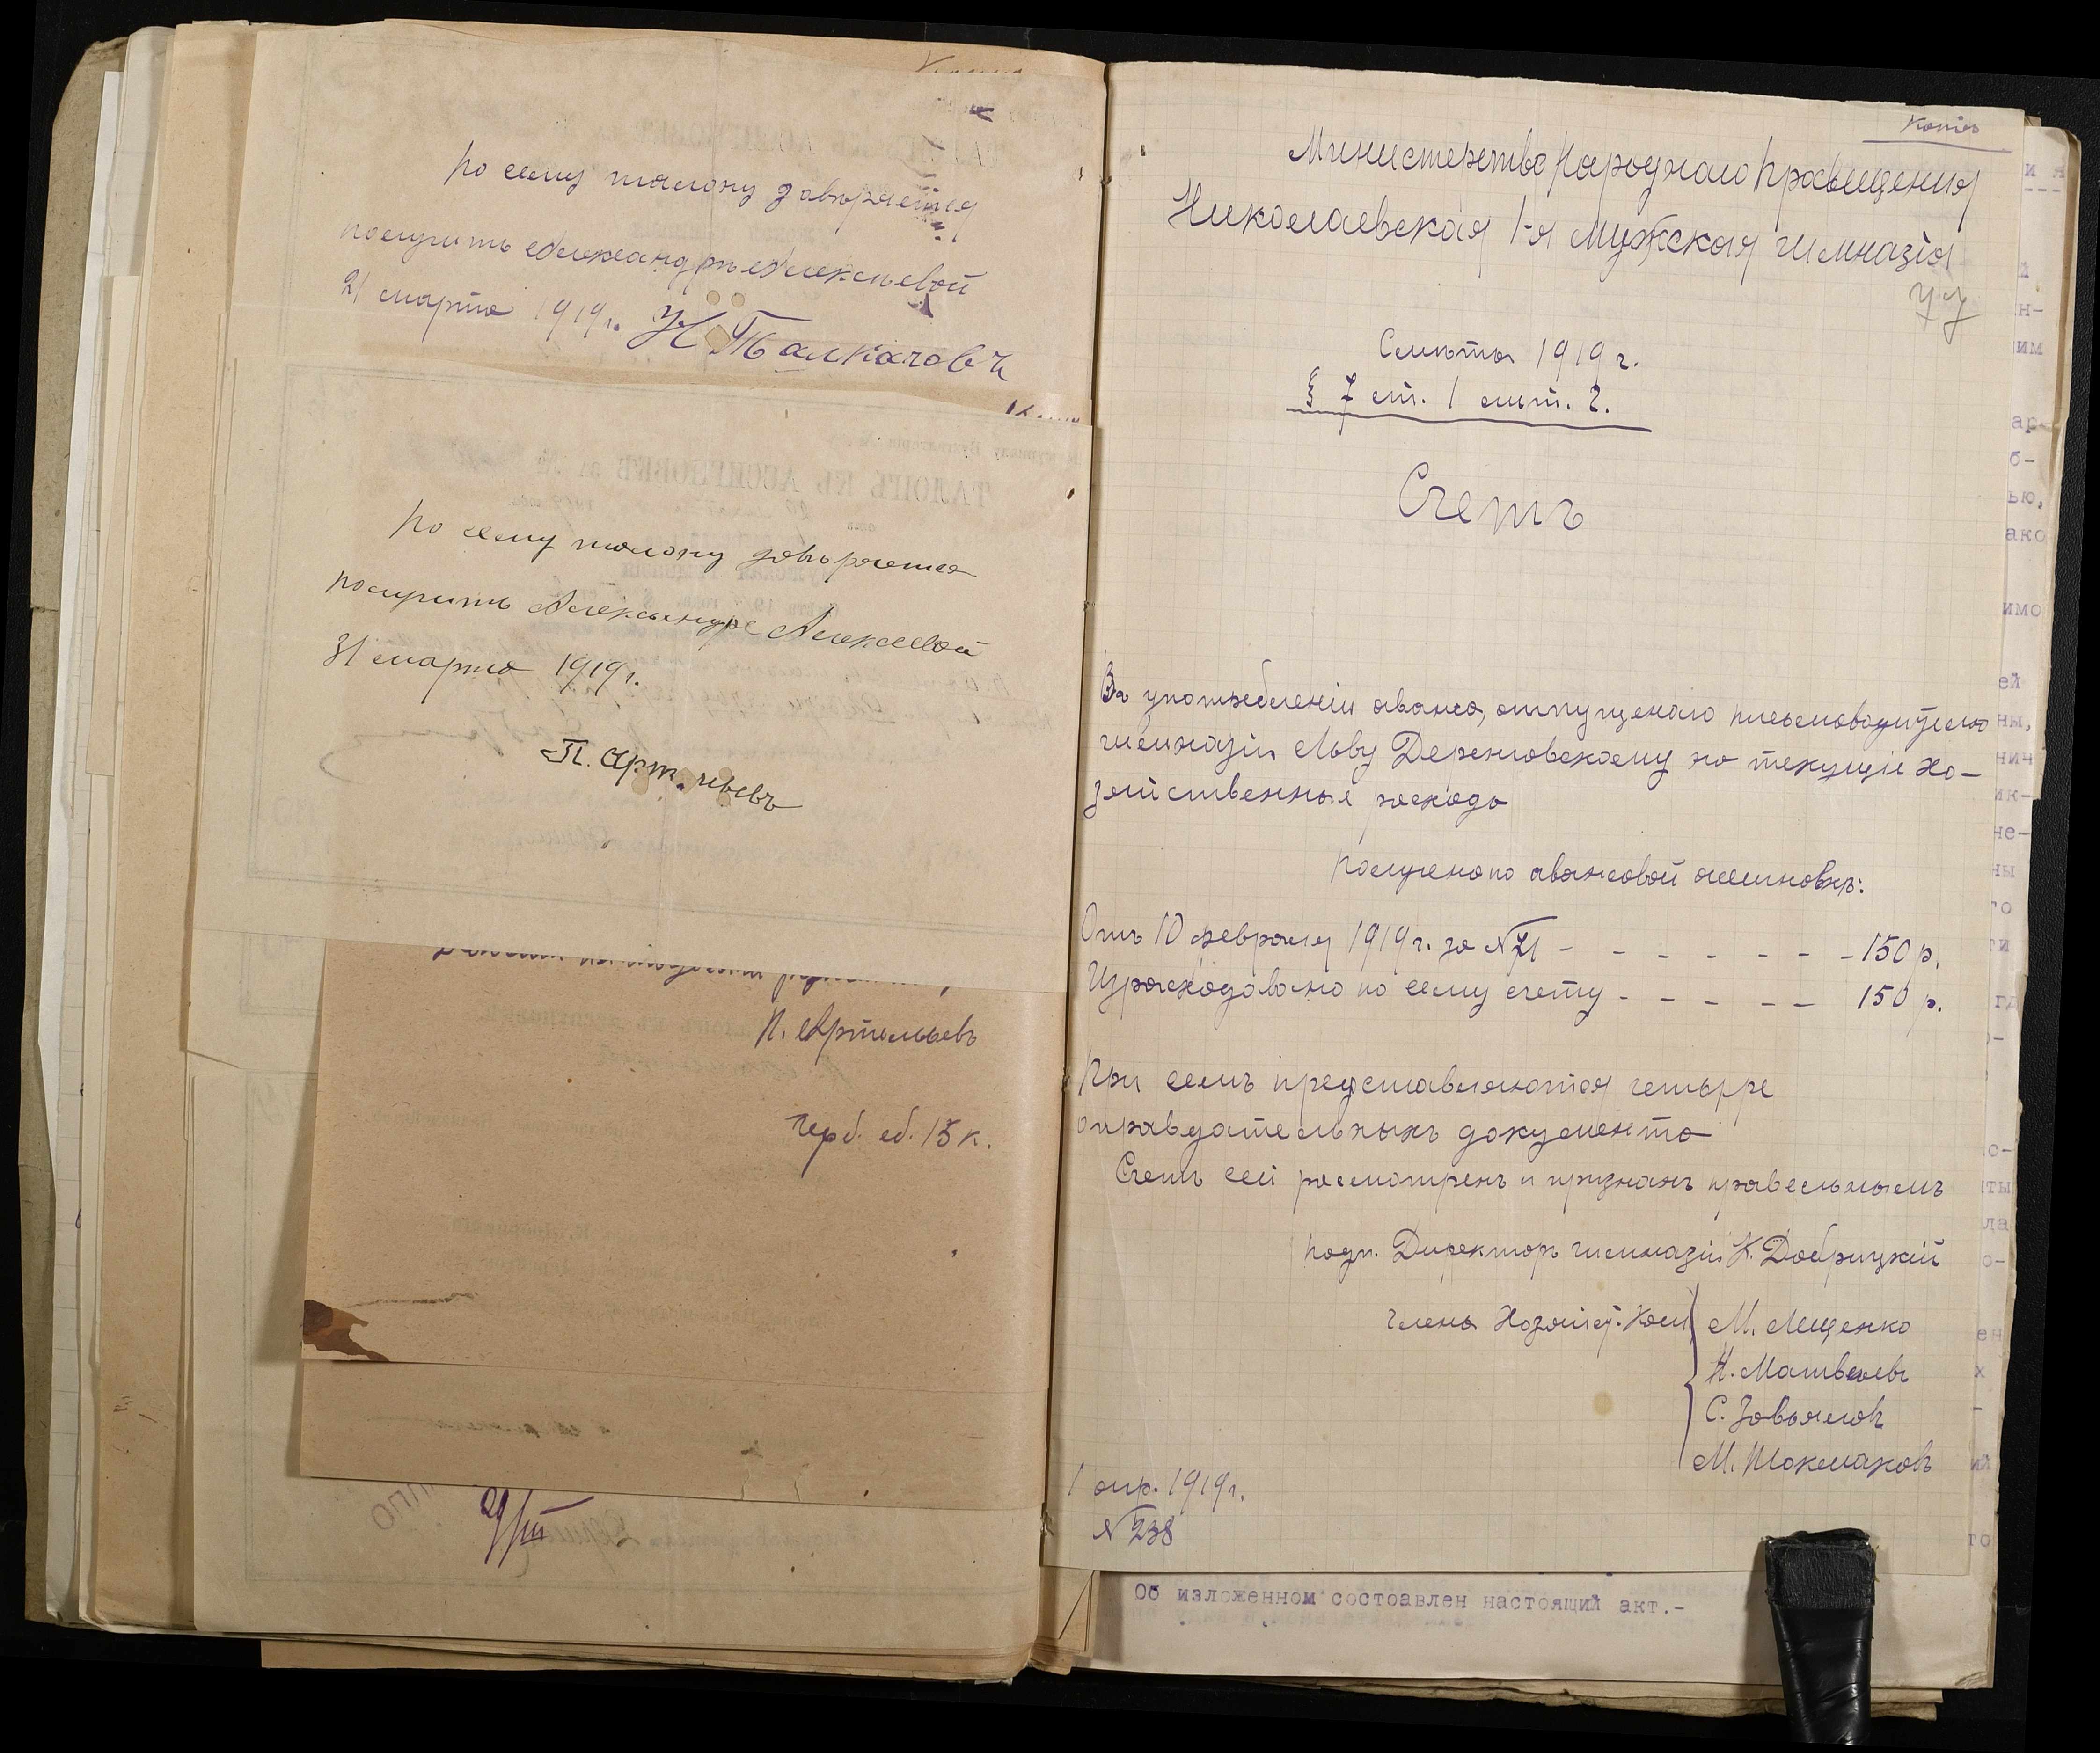 По сему талону довѣряется
получить Александрѣ Алексѣевой
21 марта 1919 г.
По сему талону довѣряется
получить Александре Алексеевой
31 марта 1919 г.
П. Артемьевъ
П. Артемьевъ
герб. сб. 15 к.
Копія
Министерство Народнаго Просвещения
Николаевская 1-я мужская гимназія
77
Смѣта 1919 г.
§ 7 ст. 1 лит. 2.
Счетъ
Въ употребленіи аванса, отпущенаго письмоводителю
гимназіи Льву Деренговскому на текущіе хо-
зяйственныя расходы
Получено по авансовой ассигновкѣ:
Отъ 10 февраля 1919 г. за № 21 - - - - - - - 150 р.
Израсходовано по сему счету - - - - - 150 р.
При семъ представляются четыре
оправдательныхъ документа
Счетъ сей разсмотренъ и признанъ правельнымъ
подп. Директоръ гимназіи К. Добрицкій
Члены Хозяйст. Ком. М. Лещенко
Н. Матвеевъ
С. Завьяловъ
М. Токмаковъ
1 апр. 1919 г.
№ 238
Об изложенном состоавлен настоящий акт.-